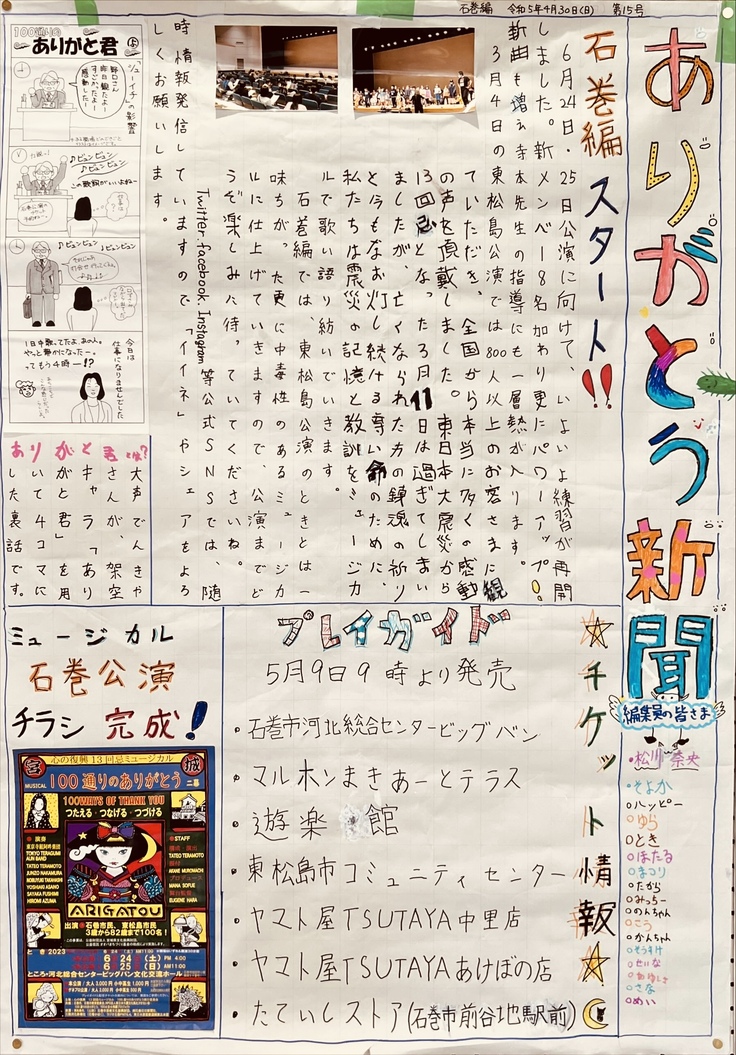 石巻編 令和5年4月30日(日) 第15号
ありがとう新聞
石巻編 スタート!!
6月24日・25日公演に向けて、いよいよ練習が再開
しました。新メンバー8名加わり更にパワーアップ!
新曲も増え寺本先生の指導にも一層熱が入ります。
3月4日の東松島公演では800人以上のお客さまに観
ていただき、全国から本当に多くの感動
の声を頂戴しました。東日本大震災から
13回忌となった3月11日は過ぎてしまい
ましたが、亡くなられた方の鎮魂の祈り
と今もなお灯し続ける尊い命のために、
私たちは震災の記憶と教訓をミュージカ
ルで歌い語り紡いでいきます。
石巻編では、東松島公演のときとは一
味ちがった更に中毒性のあるミュージカ
ルに仕上げていきますので、公演までど
うぞ楽しみに待っていてくださいね。
Twitter・facebook・Instagram等公式SNSでは、随
時情報発信していますので、「イイネ」やシェアをよろ
しくお願いします。
100通りの
ありがと君
「シューイチ」の影響
野口さん
昨日観たよー
すごかったよー
感動したー
♪ピュンピュン
♪ピュンピュン
この歌詞がいいよねー
♪ピュンピュン
♪ピュンピュン
今日は
仕事になりませんでした
1日中歌ってたよ、あの人。
やっと静かになったー。
ってもう4時ー!?
ありがと君とは?
大声でんきや
さんが、架空
キャラ「あり
がと君」を用
いて4コマに
した裏話です。
ミュージカル
石巻公演
チラシ 完成!
心の復興13回忌ミュージカル
宮城
MUSICAL 100通りのありがとう 二幕
100WAYS OF THANK YOU
つたえる・つなげる・つづける
演奏
TOKYO TERAGUMI
ALIN BAND
TATEO TERAMOTO
JUNZO NAKAMURA
NORIYUKI TAKAHASHI
YOSHIAKI ASANO
SATAKA FUSHIMI
HIROMI AZUMA
STAFF
TATEO TERAMOTO
AKANE MUROMACHI
MANA SOFUE
EUGENE HARA
ARIGATOU
出演 石巻市民、東松島市民
3歳から82歳まで100名!
とき2023
6/24(土) PM4:00
6/25(日) AM11:00
ところ・河北総合センタービッグバン文化交流ホール
プレイガイド
☆チケット情報☆
5月9日9時より発売
・石巻市河北総合センタービッグバン
・マルホンまきあーとテラス
・遊楽館
・東松島市コミュニティセンター
・ヤマト屋TSUTAYA中里店
・ヤマト屋TSUTAYAあけぼの店
・たていしストア(石巻市前谷地駅前)
編集員の皆さま
・松川奈央
・そよか
○ハッピー
○ゆら
○とき
○ほたる
○まつり
○たから
○みっちー
○のんちゃん
○こう
○かんちゃん
○そうすけ
○せいな
○さな
○めい